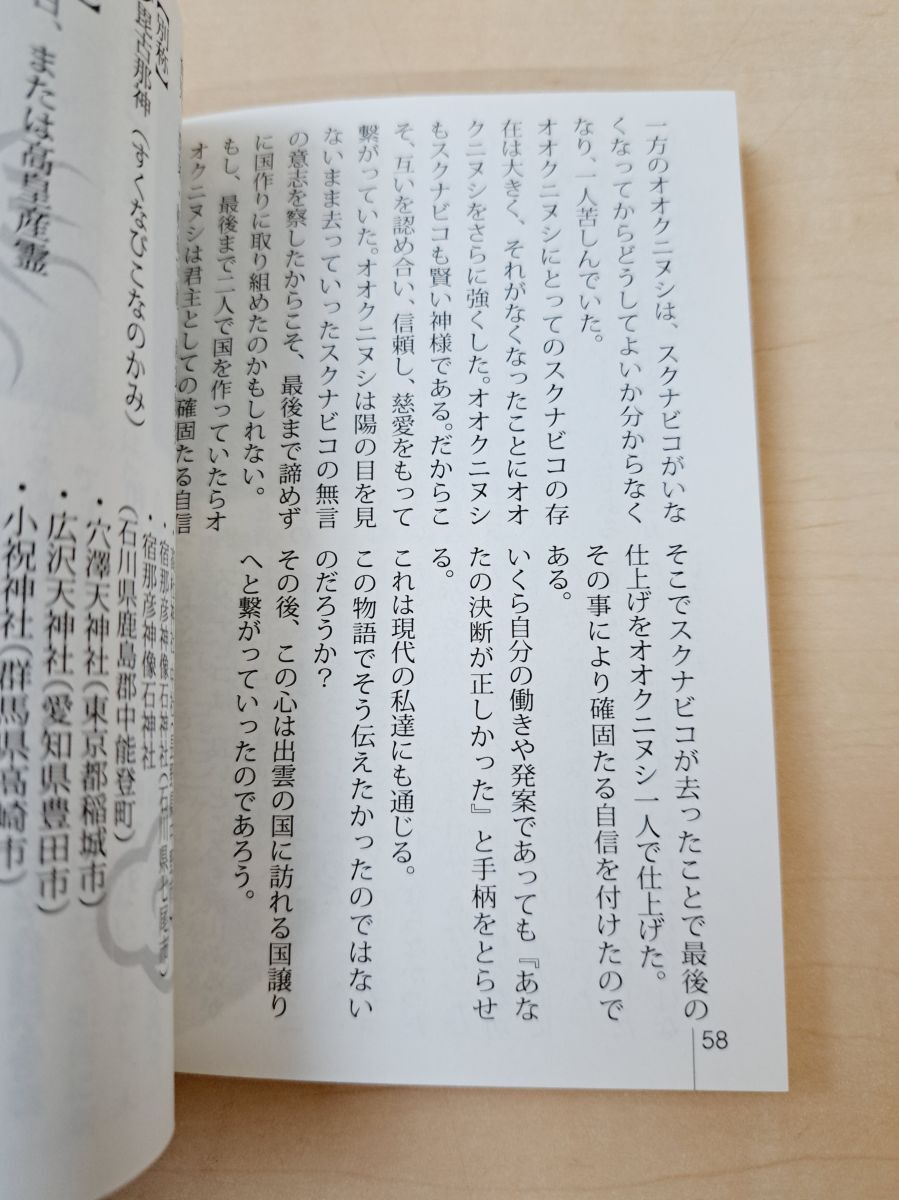 一方のオオクニヌシは、スクナビコがいな
くなってからどうしてよいか分からなく
なり、一人苦しんでいた。
オオクニヌシにとってのスクナビコの存
在は大きく、それがなくなったことにオオ
クニヌシをさらに強くした。オオクニヌシ
もスクナビコも賢い神様である。だからこ
そ、互いを認め合い、信頼し、慈愛をもって
繋がっていた。オオクニヌシは陽の目を見
ないまま去っていったスクナビコの無言
の意志を察したからこそ、最後まで諦めず
に国作りに取り組めたのかもしれない。
もし、最後まで二人で国を作っていたらオ
オクニヌシは君主としての確固たる自信
そこでスクナビコが去ったことで最後の
仕上げをオオクニヌシ一人で仕上げた。
その事により確固たる自信を付けたので
ある。
いくら自分の働きや発案であっても『あな
たの決断が正しかった』と手柄をとらせ
る。
これは現代の私達にも通じる。
この物語でそう伝えたかったのではない
のだろうか?
その後、この心は出雲の国に訪れる国譲り
へと繋がっていったのであろう。
58
・宿那彦神像石神社(石川県七尾市)
・宿那彦神像石神社
(石川県鹿島郡中能登町)
・穴澤天神社(東京都稲城市)
・広沢天神社(愛知県豊田市)
・小祝神社(群馬県高崎市)
【別称】
毘古那神(すくなびこなのかみ)
、または高皇産霊